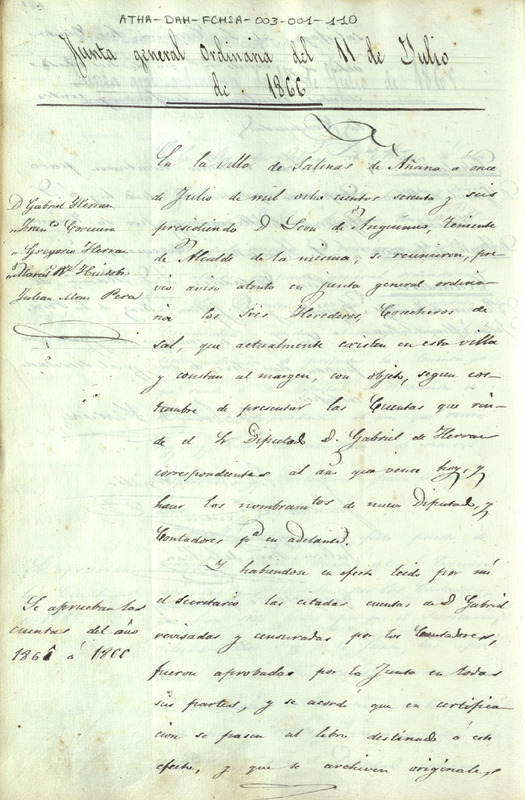 ATHA-DAH-FCHSA-003-001-110
Junta general ordinaria del 11 de Julio
de 1866
D. Gabriel Herran
" Gregorio Herran
Julian Mons Perea
En la villa de Salinas de Añana á once
de Julio de mil ocho cientos sesenta y seis
presidiendo D. Leon de Anguiano, Teniente
de Alcalde de la misma, se reunieron, pre-
vio aviso atento en junta general ordina-
ria los Sres Herederos, Concheros de
sal, que actualmente existen en esta villa
y constan al margen, con objeto, segun cos-
tumbre de presentar las Cuentas que rin-
de el Sr Diputado D. Gabriel de Herran
correspondientes al año que vence hoy, y
hacer los nombramtos de nuevo Diputado, y
Contadores pa en adelante.
Se aprueban las
cuentas del año
1865 á 1866
Y habiendose en efecto leido por mi
el secretario las citadas cuentas de D. Gabriel
revisadas y censuradas por los Contadores,
fueron aprobadas por la Junta en todas
sus partes, y se acordó que en certifica-
cion se pasen al libro destinado á este
efecto, y que se archiven originales,